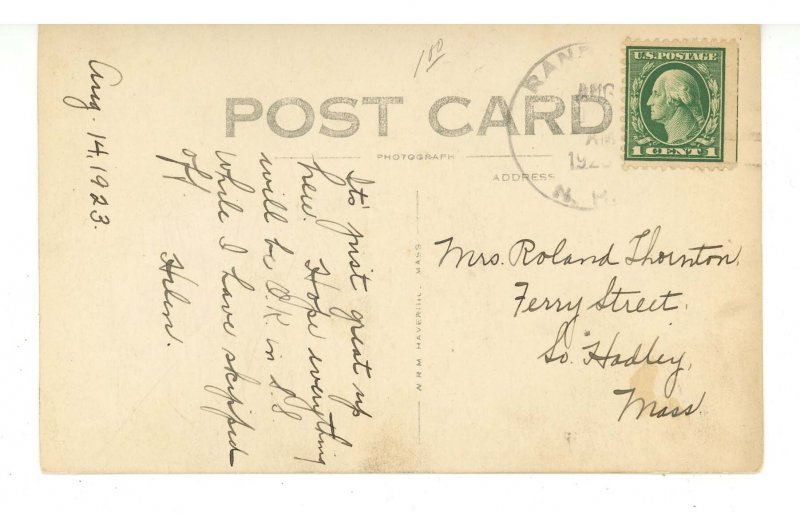 1 00
POST CARD
PHOTOGRAPH
ADDRESS
U.S. POSTAGE
1 CENT 1
RAN
AUG
AM
192
N. H.
Aug. 14, 1923.
It's just great up
here. Hope everything
will be O.K. in
while I have skipped
off.
Helen.
N R M HAVERHILL, MASS
Mrs. Roland Thornton,
Ferry Street,
So. Hadley,
Mass.